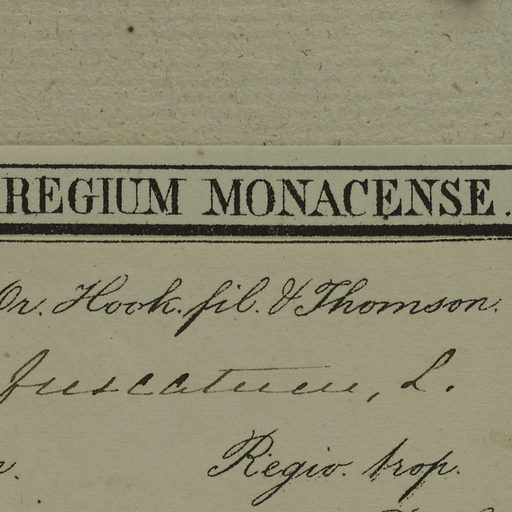 REGIUM MONACENSE.
Dr. Hook. fil. & Thomson.
fuscatum, L.
Regio. trop.